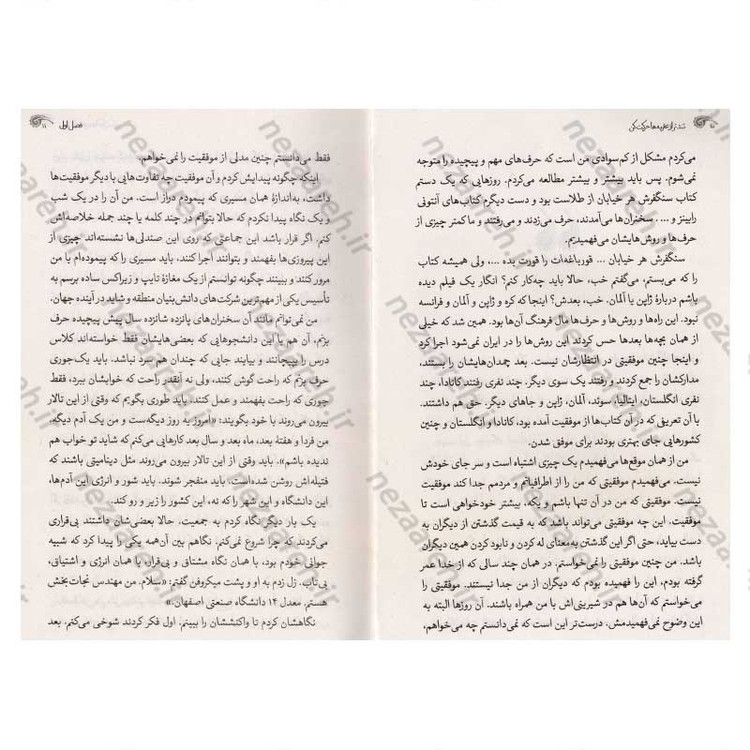 تندتر از عقربه‌ها حرکت کن
می‌کردم مشکل از کم‌سوادی من است که حرف‌های مهم و پیچیده را متوجه
نمی‌شوم. پس باید بیشتر و بیشتر مطالعه می‌کردم. روزهایی که یک دستم
کتاب سنگفرش هر خیابان از طلاست بود و دست دیگرم کتاب‌های آنتونی
رابینز و .... سخنران‌ها می‌آمدند، حرف می‌زدند و می‌رفتند و ما کمتر چیزی از
حرف‌ها و روش‌هایشان می‌فهمیدیم.
سنگفرش هر خیابان ... قورباغه‌ات را قورت بده ....، ولی همیشه کتاب
را که می‌بستم، می‌گفتم خب، حالا باید چه‌کار کنم؟ انگار یک فیلم دیده
باشم دربارهٔ ژاپن یا آلمان. خب، بعدش؟ اینجا که کره و ژاپن و آلمان و فرانسه
نبود. این راه‌ها و روش‌ها و حرف‌ها مال فرهنگ آن‌ها بود. همین شد که خیلی
از همان بچه‌ها بعدها حس کردند این روش‌ها را در ایران نمی‌شود اجرا کرد
و اینجا چنین موفقیتی در انتظارشان نیست. بعد چمدان‌هایشان را بستند،
مدارکشان را جمع کردند و رفتند یک سوی دیگر. چند نفری رفتند کانادا، چند
نفری انگلستان، ایتالیا، سوئد، آلمان، ژاپن و جاهای دیگر. حق هم داشتند.
با آن تعریفی که در آن کتاب‌ها از موفقیت آمده بود، کانادا و انگلستان و چنین
کشورهایی جای بهتری بودند برای موفق شدن.
من از همان موقع‌ها می‌فهمیدم یک چیزی اشتباه است و سر جای خودش
نیست. می‌فهمیدم موفقیتی که من را از اطرافیانم و مردمم جدا کند موفقیت
نیست. موفقیتی که من در آن تنها باشم و یکه، بیشتر خودخواهی است تا
موفقیت. این چه موفقیتی می‌تواند باشد که به قیمت گذشتن از دیگران به
دست بیاید، حتی اگر این گذشتن به‌معنای له کردن و نابود کردن همین دیگران
باشد. من چنین موفقیتی را نمی‌خواستم. در همان چند سالی که از خدا عمر
گرفته بودم، این را فهمیده بودم که دیگران از من جدا نیستند. موفقیتی را
می‌خواستم که آن‌ها هم در شیرینی‌اش با من همراه باشند. آن روزها البته به
این وضوح نمی‌فهمیدمش. درست‌تر این است که نمی‌دانستم چه می‌خواهم،
فصل اول
۱۱
فقط می‌دانستم چنین مدلی از موفقیت را نمی‌خواهم.
اینکه چگونه پیدایش کردم و آن موفقیت چه تفاوت‌هایی با دیگر موفقیت‌ها
داشت، به‌اندازهٔ همان مسیری که پیمودم دراز است. من آن را در یک شب
و یک نگاه پیدا نکردم که حالا بتوانم در چند کلمه یا چند جمله خلاصه‌اش
کنم. اگر قرار باشد این جماعتی که روی این صندلی‌ها نشسته‌اند چیزی از
این پیروزی‌ها بفهمند و بتوانند اجرا کنند، باید مسیری را که پیموده‌ام با من
مرور کنند و ببینند چگونه توانستم از یک مغازهٔ تایپ و زیراکس ساده برسم به
تأسیس یکی از مهم‌ترین شرکت‌های دانش‌بنیان منطقه و شاید در آینده جهان.
من نمی‌توانم مانند آن سخنران‌های پانزده شانزده سال پیش پیچیده حرف
بزنم، آن هم با این دانشجوهایی که بعضی‌هایشان فقط خواسته‌اند کلاس
درس را بپیچانند و بیایند جایی که چندان هم سرد نباشد. باید یک‌جوری
حرف بزنم که راحت گوش کنند، ولی نه آنقدر راحت که خوابشان ببرد، فقط
جوری که راحت بفهمند و عمل کنند. باید طوری بگویم که وقتی از این تالار
بیرون می‌روند با خود بگویند: «امروز یه روز دیگه‌ست و من یک آدم دیگه.
من فردا و هفتهٔ بعد، ماه بعد و سال بعد کارهایی می‌کنم که شاید تو خواب هم
ندیده باشم». باید وقتی از این تالار بیرون می‌روند مثل دینامیتی باشند که
فتیله‌اش روشن شده‌است. باید منفجر شوند. باید شور و انرژی این آدم‌ها،
این دانشگاه و این شهر را که نه، این کشور را زیر و رو کند.
یک بار دیگر نگاه کردم به جمعیت. حالا بعضی‌شان داشتند بی‌قراری
می‌کردند که چرا شروع نمی‌کنم. نگاهم بین آن‌همه یکی را پیدا کرد که شبیه
جوانی خودم بود، با همان نگاه مشتاق و بی‌قرار، با همان انرژی و اشتیاق،
بی‌تاب. زل زدم به او و پشت میکروفن گفتم: «سلام. من مهندس نجات‌بخش
هستم. معدل ۱۴ دانشگاه صنعتی اصفهان.»
نگاهشان کردم تا واکنششان را ببینم. اول فکر کردند شوخی می‌کنم. بعد
nezaareh.ir